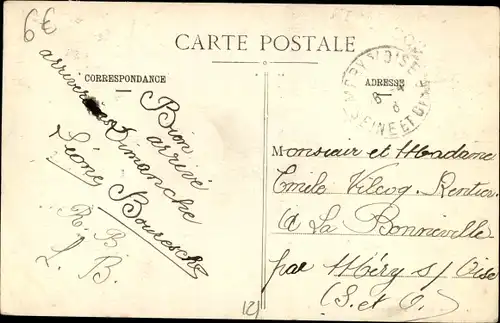 6e
CARTE POSTALE
CORRESPONDANCE
ADRESSE
Bien
arrivé
arriverons Dimanche
Léone Bouresche
R. B.
L. B.
SEINE ET O
Monsieur et Madame
Emile Vilcoq. Rentier
à La Bonneville
par Méry s/ Oise
(S. et O.)
12